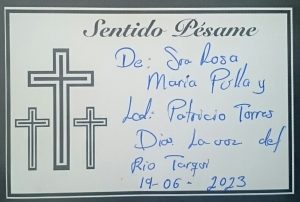 Sentido Pésame
De: Sra Rosa
María Pulla y
Lcd: Patricio Torres
Dios La voz del
Rio Tarqui
19-06-2023